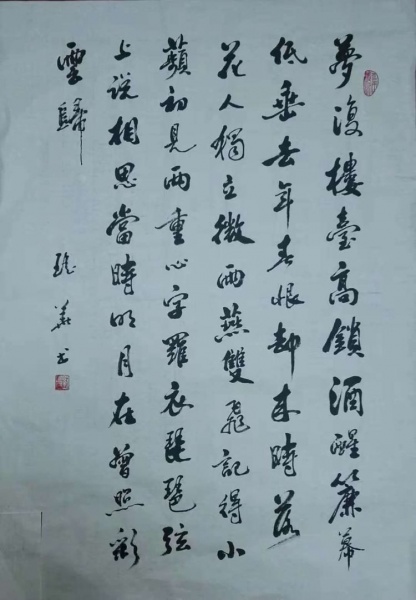 夢後樓臺高鎖酒醒簾幕
低垂去年春恨却來時落
花人獨立微雨燕雙飛記得小
蘋初見兩重心字羅衣琵琶弦
上説相思當時明月在曾照彩
雲歸
书